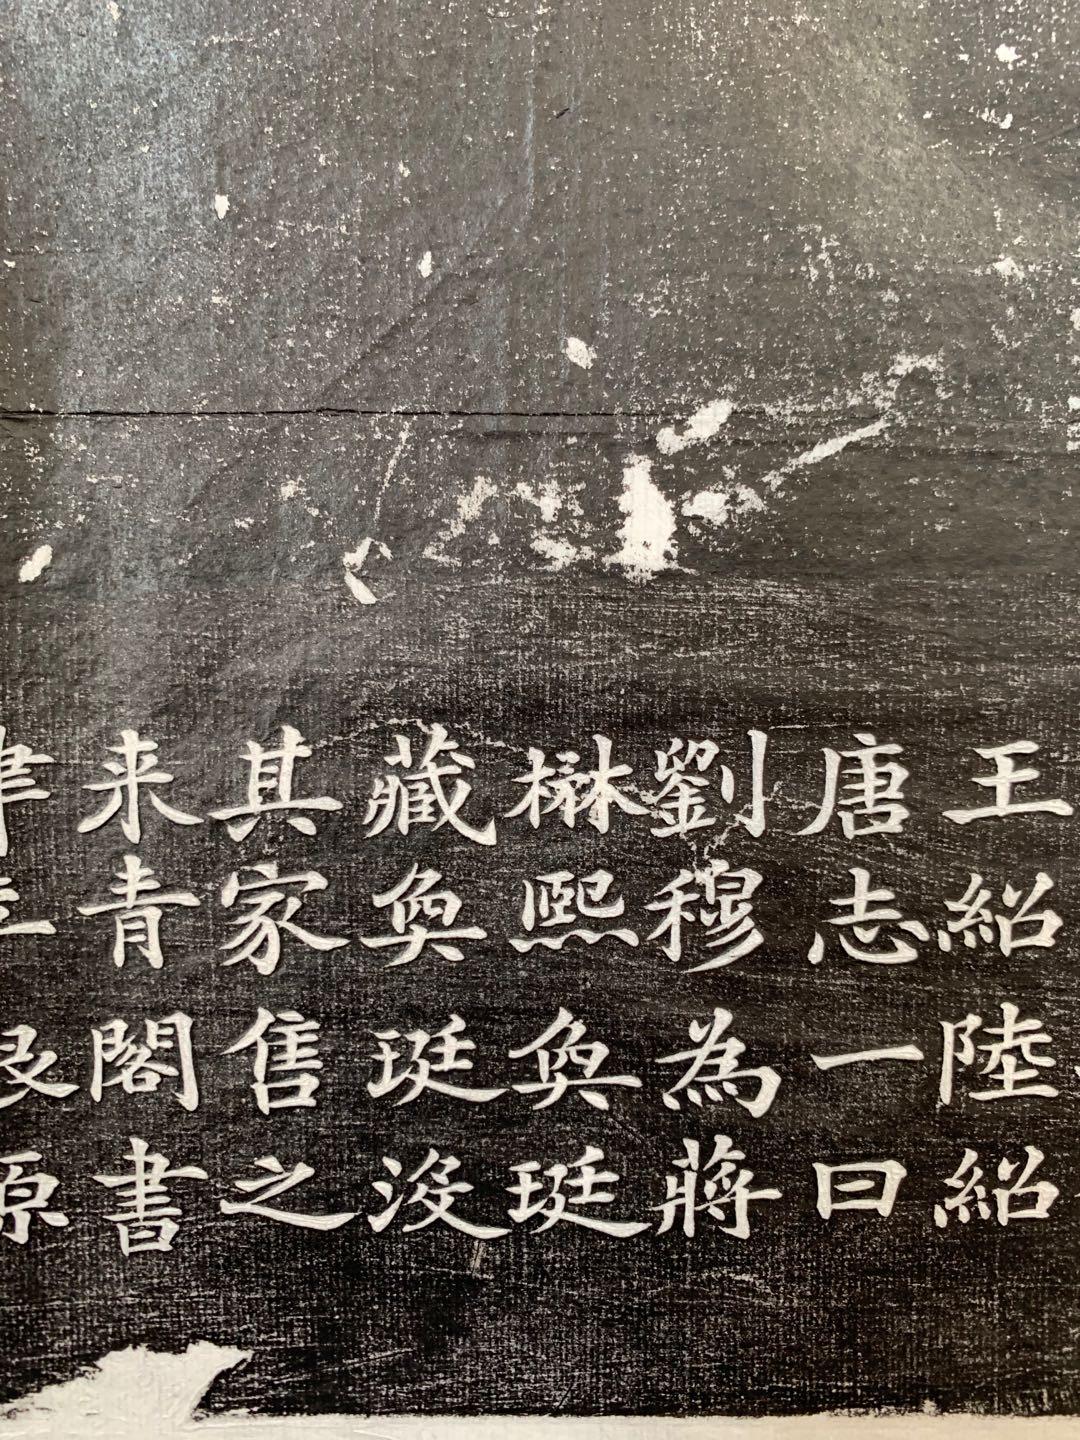 王紹陸紹
唐志一曰
劉穆為蔣
楙熙奐珽
藏奐珽沒
其家售之
来青閣書